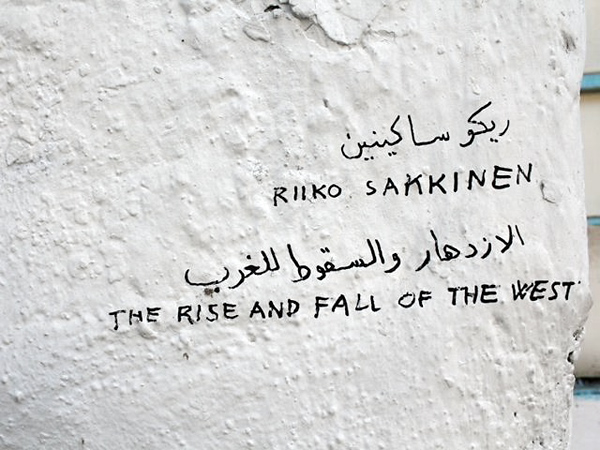 ريكو ساكينين
RIIKO SAKKINEN
الازدهار والسقوط للغرب
THE RISE AND FALL OF THE WEST